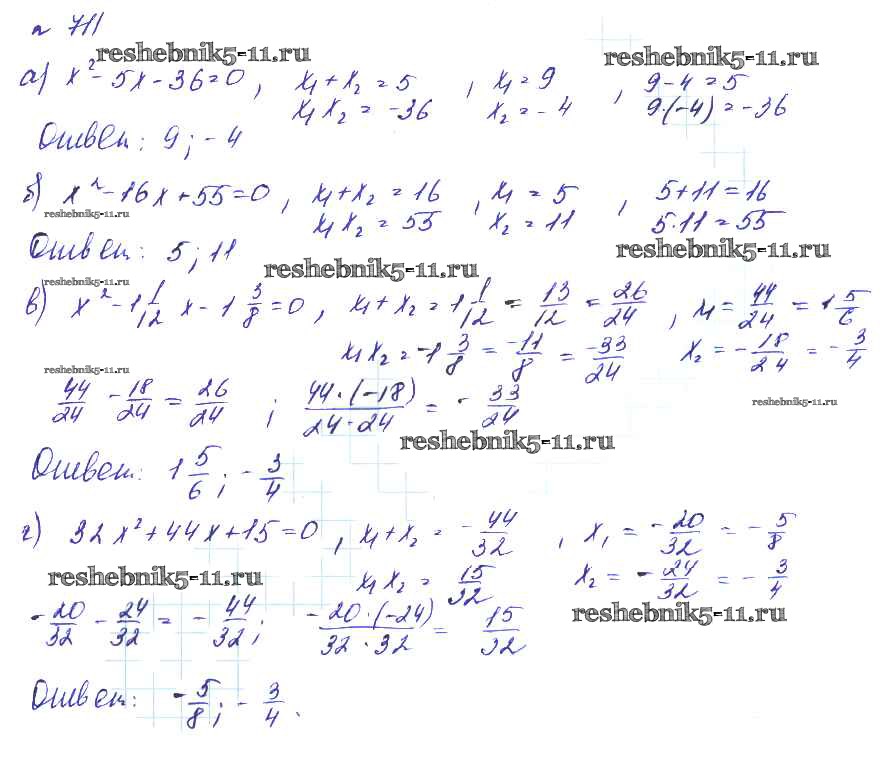 № 711
reshebnik5-11.ru reshebnik5-11.ru
а) x² - 5x - 36 = 0, x₁ + x₂ = 5, x₁ = 9, 9 - 4 = 5
x₁x₂ = -36 x₂ = -4 9·(-4) = -36
Ответ: 9; -4
б) x² - 16x + 55 = 0, x₁ + x₂ = 16, x₁ = 5, 5 + 11 = 16
reshebnik5-11.ru x₁x₂ = 55 x₂ = 11 5·11 = 55
Ответ: 5; 11 reshebnik5-11.ru reshebnik5-11.ru
reshebnik5-11.ru
в) x² - 1 1/12 x - 1 3/8 = 0, x₁ + x₂ = 1 1/12 = 13/12 = 26/24, x₁ = 44/24 = 1 5/6
x₁x₂ = -1 3/8 = -11/8 = -33/24 x₂ = -18/24 = -3/4
reshebnik5-11.ru
44/24 - 18/24 = 26/24; 44·(-18)/24·24 = -33/24 reshebnik5-11.ru
reshebnik5-11.ru
Ответ: 1 5/6; -3/4
г) 32x² + 44x + 15 = 0, x₁ + x₂ = -44/32, x₁ = -20/32 = -5/8
reshebnik5-11.ru x₁x₂ = 15/32 x₂ = -24/32 = -3/4
reshebnik5-11.ru
-20/32 - 24/32 = -44/32; -20·(-24)/32·32 = 15/32
Ответ: -5/8; -3/4.